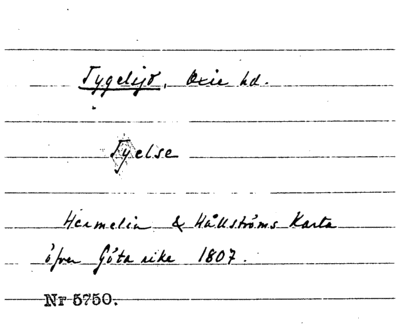 Tygelsjö, Oxie hd.
Tyelse
Hermelin & Hällströms Karta
öfver Göta rike 1807.
Nr 5750.